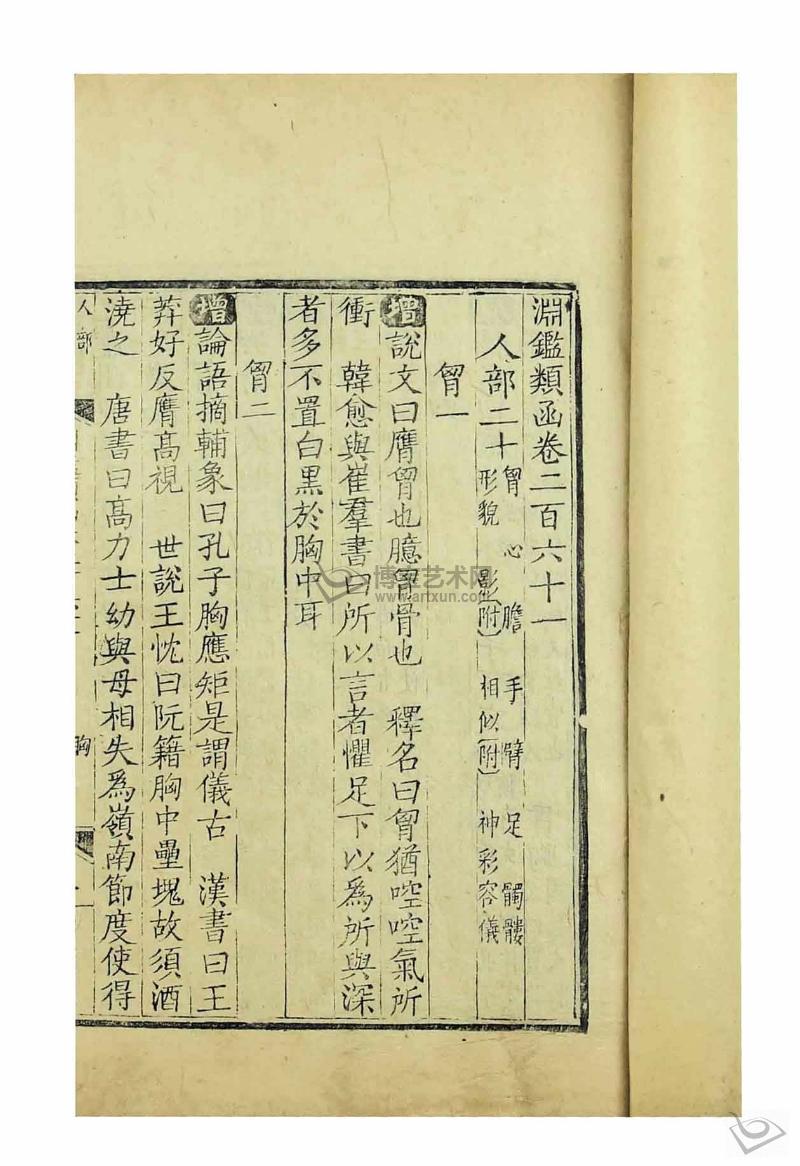 淵鑑類函卷二百六十一
人部二十 胷 心 膽 手 臂 足 髑髏
形貌 影附 相似附 神彩容儀
胷一
增說文曰膺胷也臆胷骨也 釋名曰胷猶啌啌氣所
衝 韓愈與崔羣書曰所以言者懼足下以爲所與深
者多不置白黑於胸中耳
胷二
增論語摘輔象曰孔子胸應矩是謂儀古 漢書曰王
莽好反膺髙視 世說王忱曰阮籍胸中壘塊故須酒
澆之 唐書曰髙力士幼與母相失爲嶺南節度使得
人部
胸
一
博宝艺术网
www.artxun.com